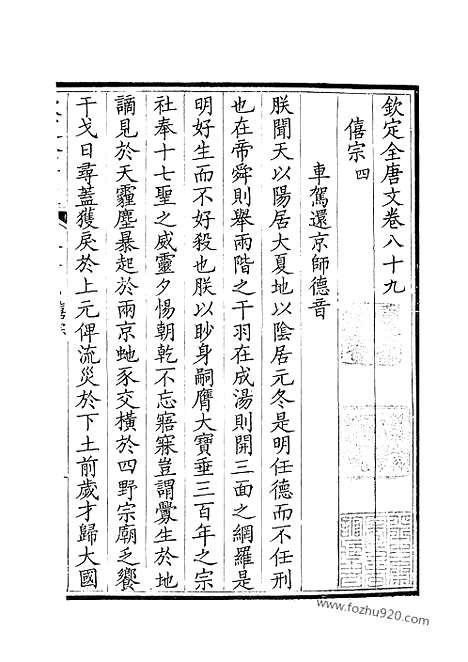 欽定全唐文卷八十九
僖宗四
車駕還京師德音
朕聞天以陽居大夏地以陰居元冬是明任德而不任刑
也在帝舜則舉兩階之干羽在成湯則開三面之網羅是
明好生而不好殺也朕以眇身嗣膺大寶垂三百年之宗
社奉十七聖之威靈夕惕朝乾不忘寤寐豈謂釁生於地
謫見於天霾塵暴起於兩京虵豕交橫於四野宗廟乏饗
干戈日尋蓋獲戾於上元俾流災於下土前歲才歸大國
僖宗
www.fozhu920.com